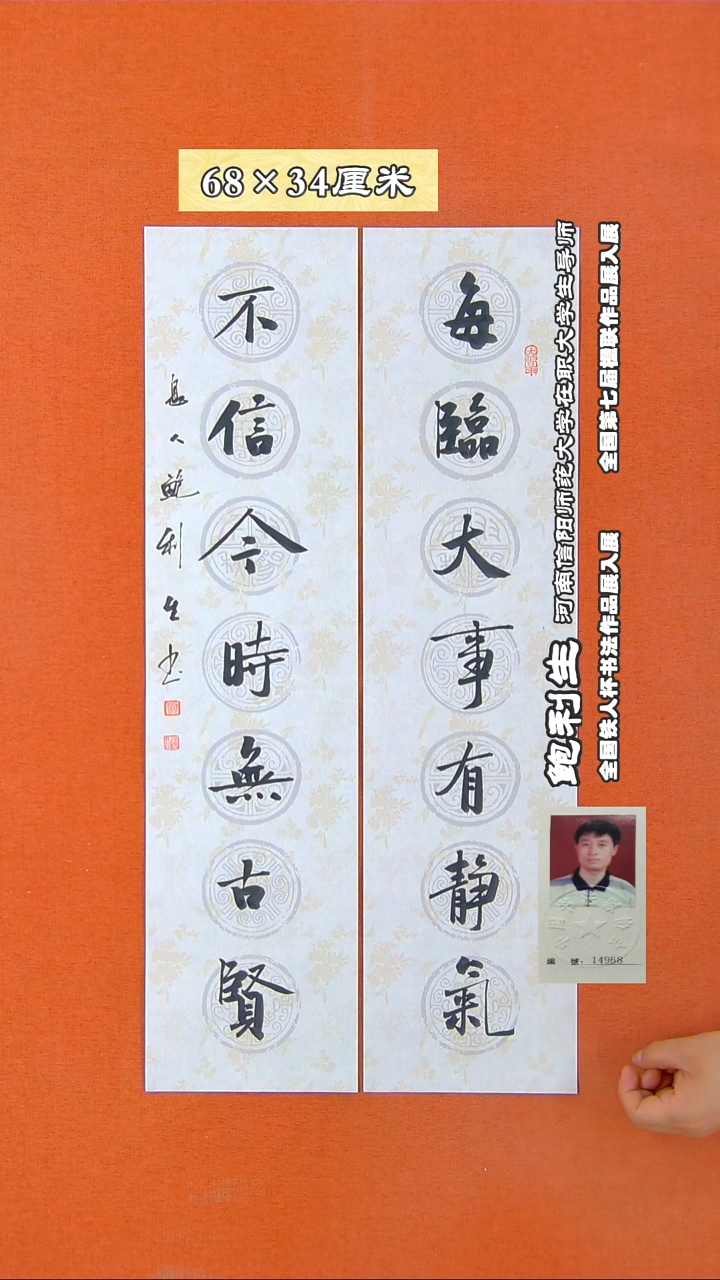 68×34厘米
每臨大事有静氣
不信今時無古賢
鮑利生书
鲍利生
河南信阳师范大学在职大学生导师
全国第七届楹联作品展入展
全国铁人杯书法作品展入展
編 號：14968